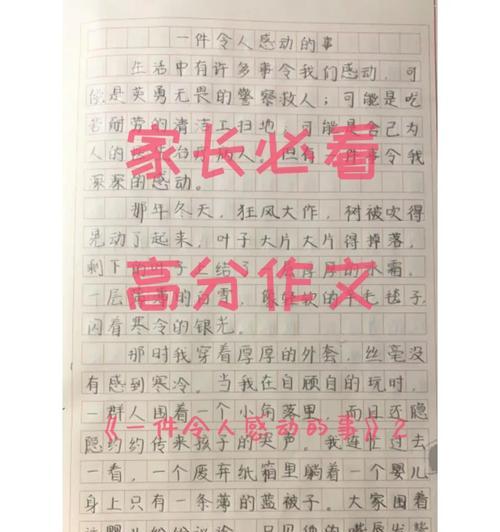 一件令人感动的事
生活中有许多事令我们感动,可
能是英勇无畏的警察救人;可能是吃
苦耐劳的清洁工扫地,可能是舍己为
人的 病人。但有一件事令我
家长必看
深深的感动。
那年冬天,狂风大作,树被吹得
晃动了起来,叶子大片大片得掉落,
剩下的 上结了 层厚厚的冰霜,
高分作文
一层 的白雪,像轻软的羊毛毯子
闪着寒冷的银光。
那时我穿着厚厚的外套,丝毫没
有感到寒冷。当我在自顾自的玩时,
一群人围着一个小角落里,而且还隐
《一件令人感动的事》2
隐约约传来孩子的哭声。我连忙过去
一看,一个废弃纸箱里躺着一个婴儿
身上只有一条薄的蓝被子。大家围着